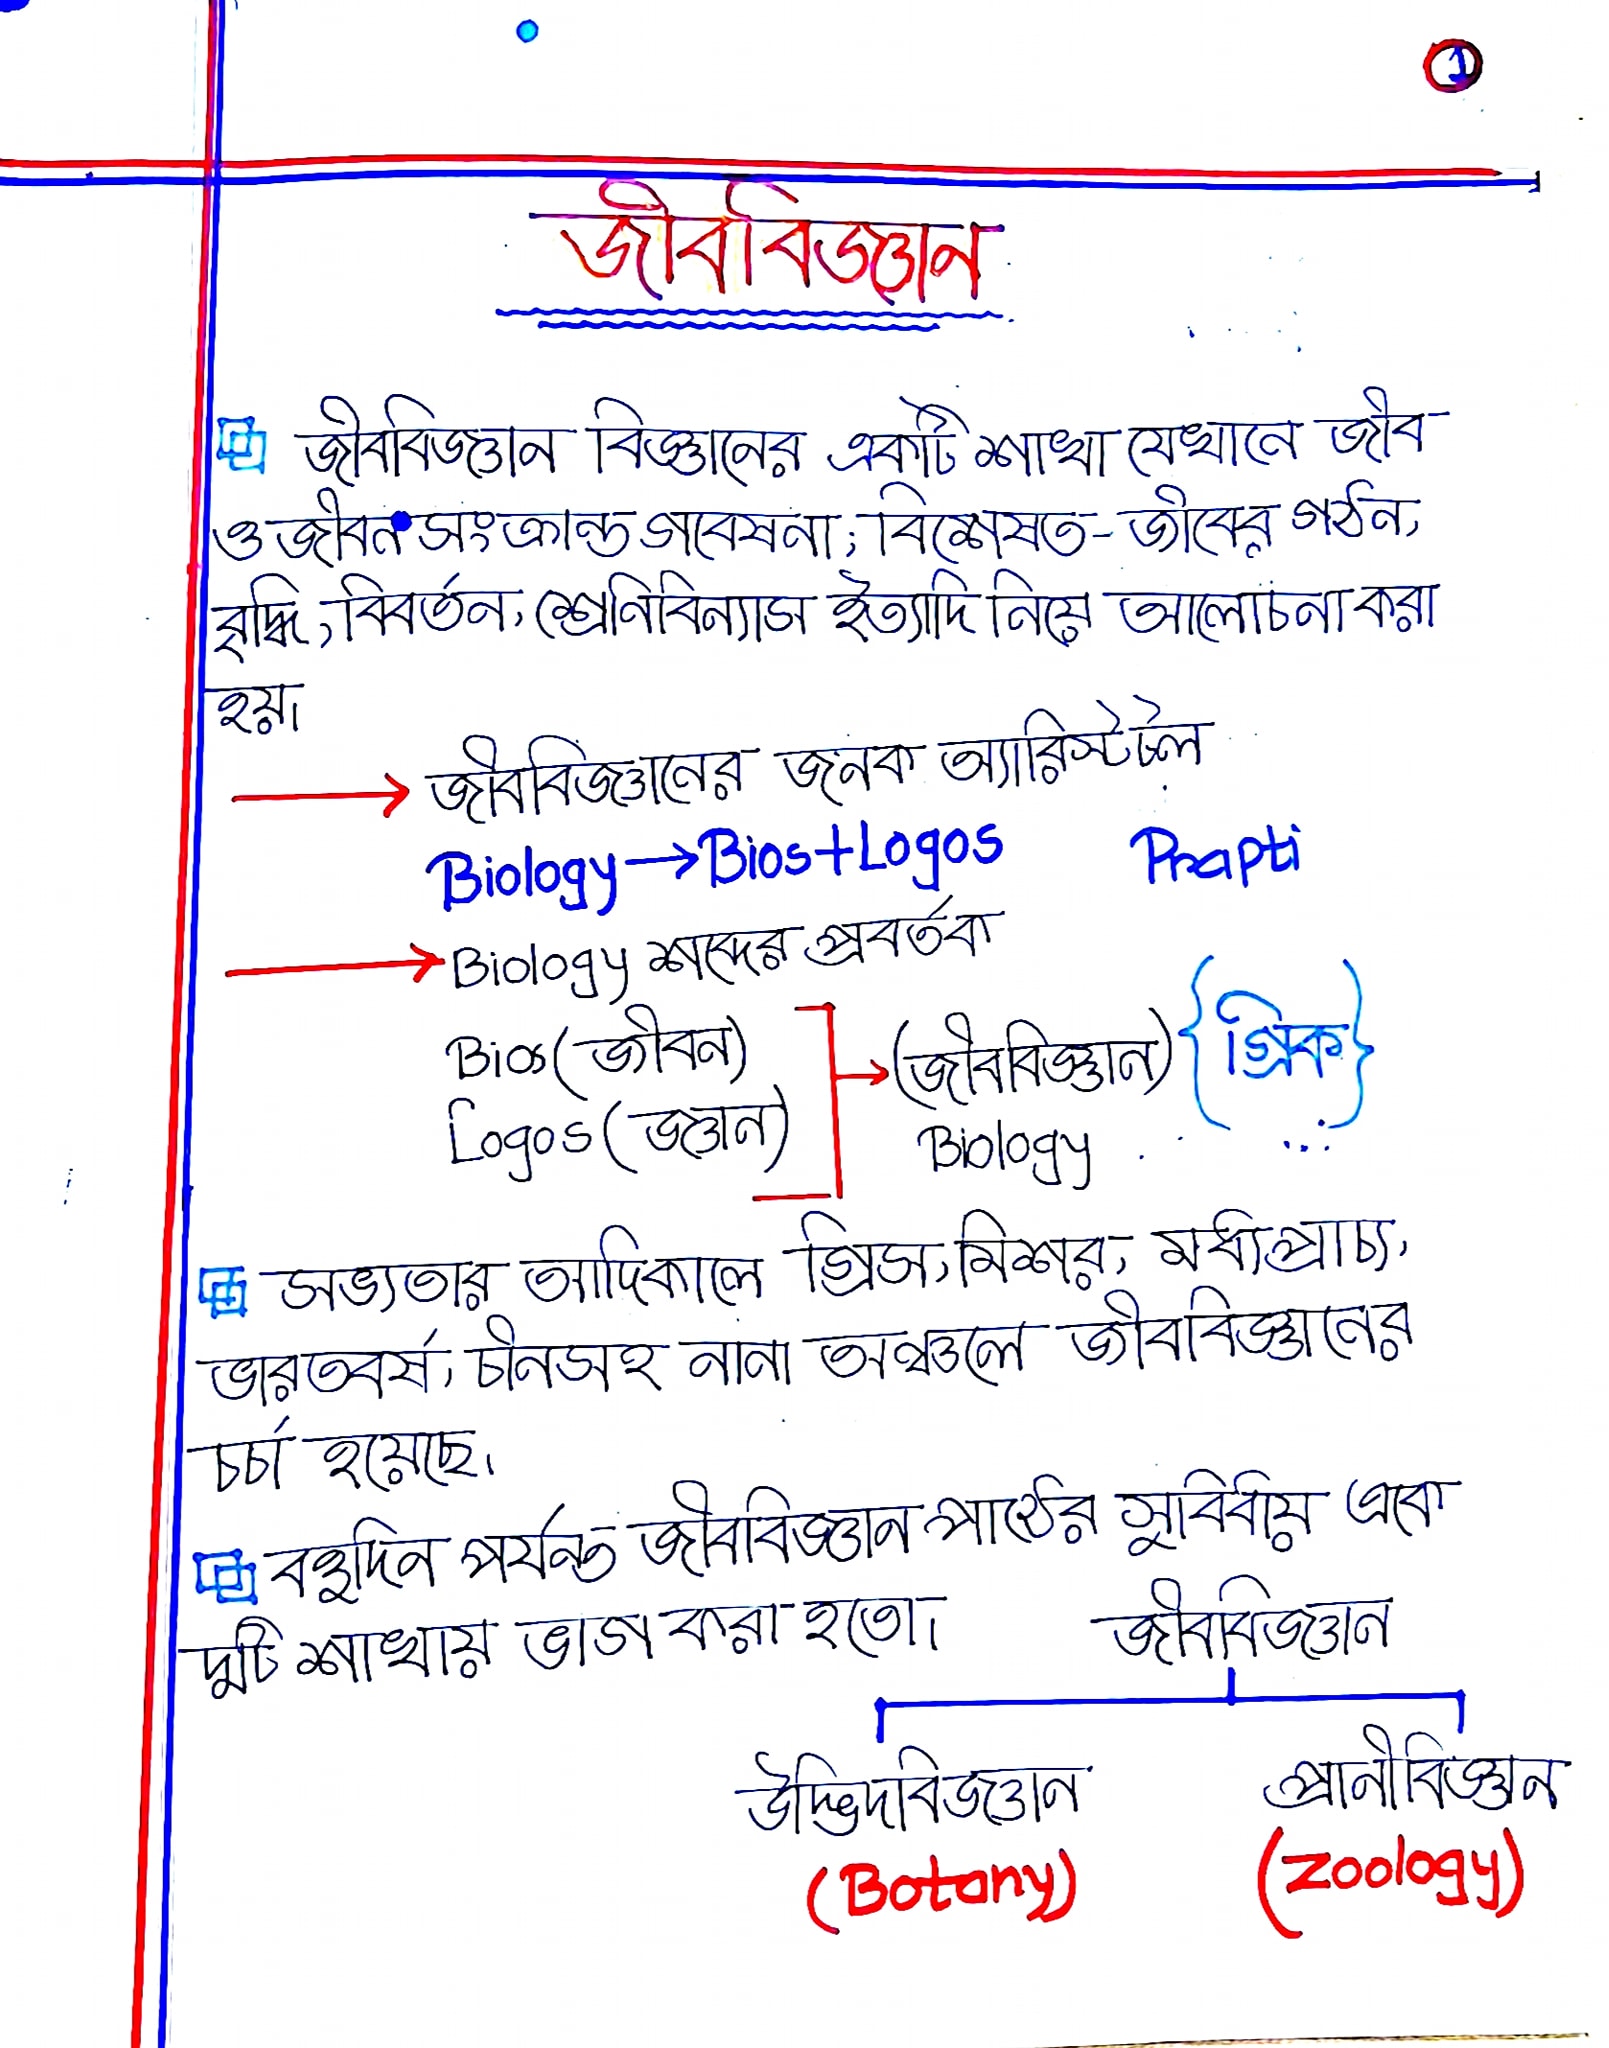 1
জীববিজ্ঞান
জীববিজ্ঞান বিজ্ঞানের একটি শাখা যেখানে জীব
ও জীবন সংক্রান্ত গবেষনা, বিশেষত- জীবের গঠন,
বৃদ্ধি, বিবর্তন, শ্রেনিবিন্যাস ইত্যাদি নিয়ে আলোচনা করা
হয়।
জীববিজ্ঞানের জনক অ্যারিস্টটল
Biology → Bios+Logos Prapti
Biology শব্দের প্রবর্তক
Bios (জীবন)
Logos (জ্ঞান)
→ (জীববিজ্ঞান) {গ্রিক}
Biology
সভ্যতার আদিকালে গ্রিস, মিশর, মধ্যপ্রাচ্য,
ভারতবর্ষ, চীনসহ নানা অঞ্চলে জীববিজ্ঞানের
চর্চা হয়েছে।
বহুদিন পর্যন্ত জীববিজ্ঞান পাঠের সুবিধায় একে
দুটি শাখায় ভাগ করা হতো।
জীববিজ্ঞান
উদ্ভিদবিজ্ঞান প্রানীবিজ্ঞান
(Botany) (Zoology)